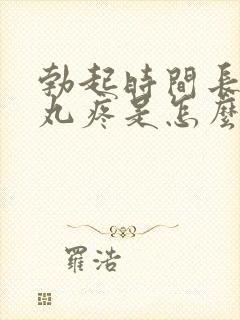 勃起時間長
丸疼是怎麼
羅浩